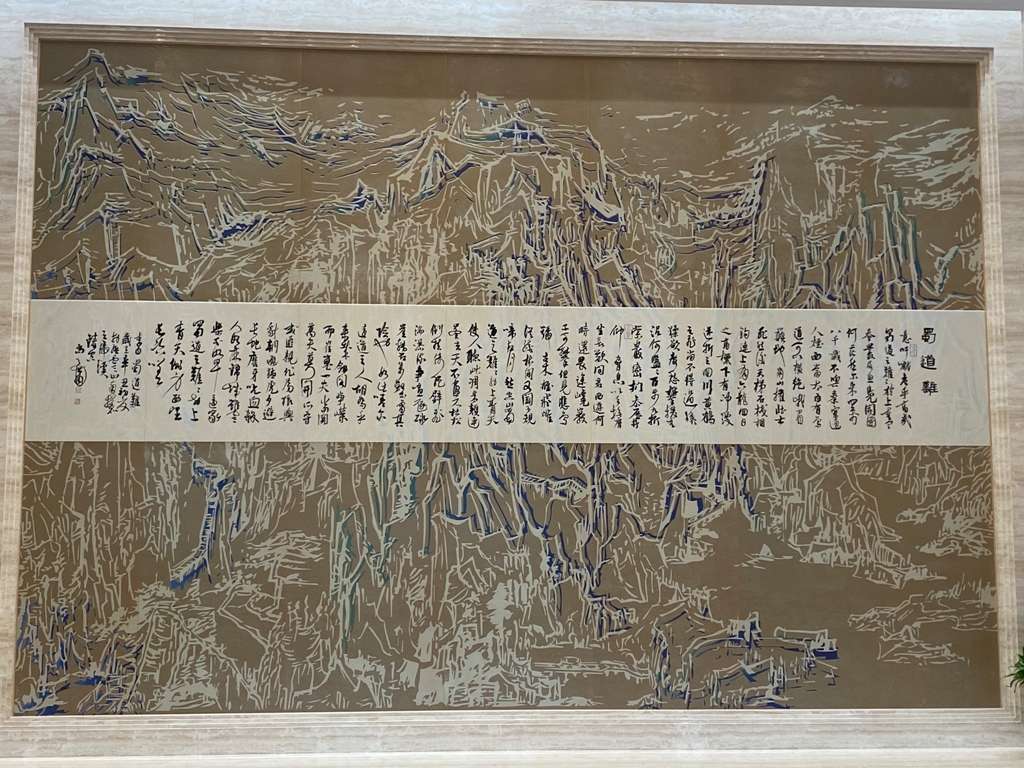 蜀道難
噫吁嚱危乎高哉
蜀道之難難於上青天
蠶叢及魚鳧開國
何茫然爾來四萬
八千歲不與秦塞通
人煙西當太白有鳥
道可以橫絕峨眉
巔地崩山摧壯士
死然後天梯石棧相
鉤連上有六龍回日
之高標下有衝波
逆折之回川黃鶴
之飛尚不得過猿
猱欲度愁攀援青
泥何盤盤百步九折
縈巖巒捫參歷井
仰脅息以手撫膺
坐長歎問君西遊何
時還畏途巉巖
不可攀但見悲鳥
號古木雄飛雌
從繞林間又聞子規
啼夜月愁空山蜀
道之難難於上青天
使人聽此凋朱顏連
峰去天不盈尺枯松
倒挂倚絕壁飛
湍瀑流爭喧豗砯
崖轉石萬壑雷其
險也如此嗟爾
遠道之人胡為乎
來哉劍閣崢嶸
而崔嵬一夫當關
萬夫莫開所守
或匪親化為狼與
豺朝避猛虎夕避
長蛇磨牙吮血殺
人如麻錦城雖云
樂不如早還家
蜀道之難難於上
青天側身西望
長咨嗟
李白蜀道難